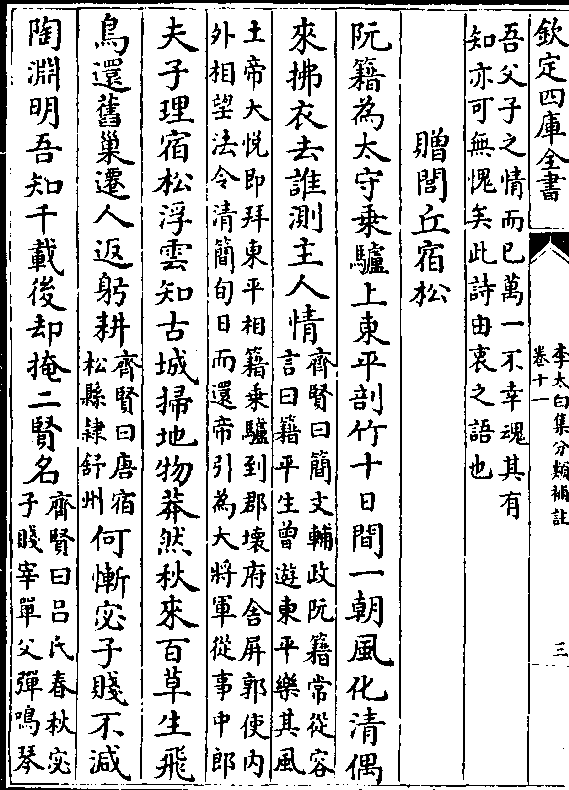 欽定四庫全書
李太白集分類補註
卷十一
三
吾父子之情而已萬一不幸魂其有
知亦可無愧矣此詩由衷之語也
贈閭丘宿松
阮籍為太守乗驢上東平剖竹十日間一朝風化清偶
來拂衣去誰測主人情齊賢曰簡文輔政阮籍常從容
言曰籍平生曾遊東平樂其風
土帝大悦即拜東平相籍乗驢到郡壊府舍屏郭使内
外相望法令清簡旬日而還帝引為大將軍從事中郎
夫子理宿松浮雲知古城掃地物莽然秋來百草生飛
鳥還舊巢遷人返躬耕齊賢曰唐宿
松縣隷舒州
何慚宓子賤不減
陶淵明吾知千載後却掩二賢名齊賢曰吕氏春秋宓
子賤宰單父彈鳴琴